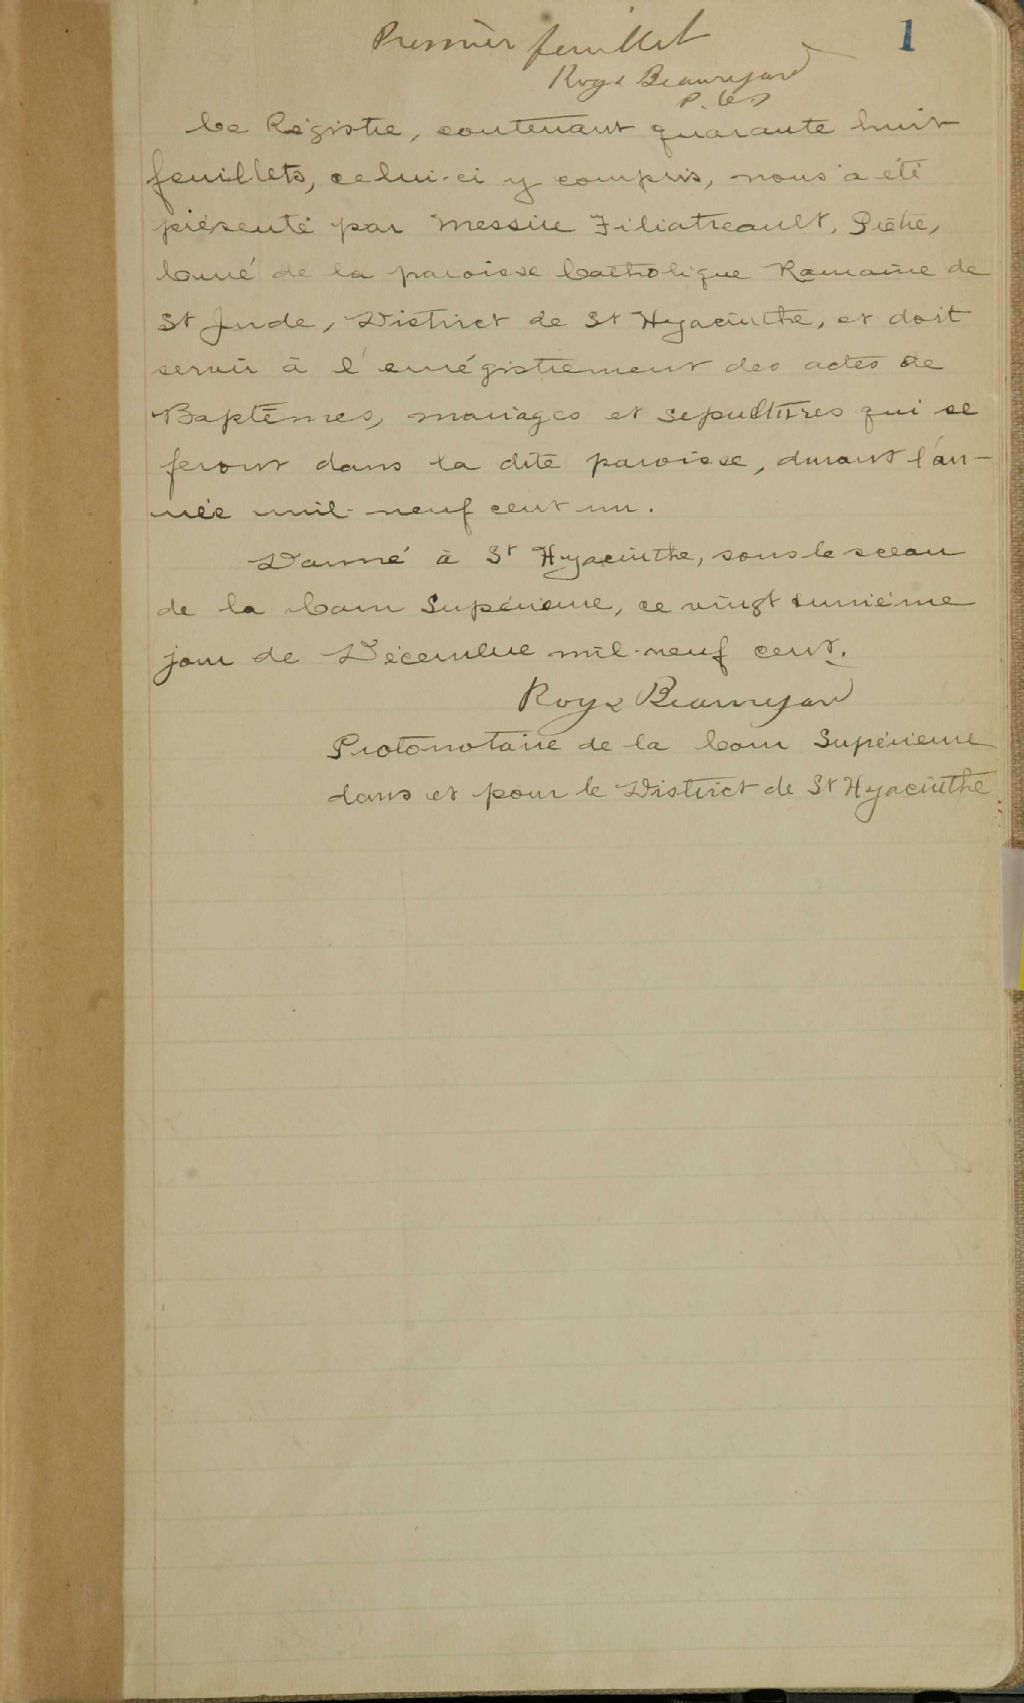 Premier feuillet
1
Roy & Beauregard
P.C.S
Ce Régistre, contenant quarante huit
feuillets, celui-ci y compris, nous a été
présenté par Messire Filiatreault, Prêtre,
Curé de la paroisse Catholique Romaine de
St Jude, District de St Hyacinthe, et doit
servir à l'enrégistrement des actes de
Baptêmes, mariages et sépultures qui se
feront dans la dite paroisse, durant l'an-
née mil-neuf cent un.
Donné à St Hyacinthe, sous le sceau
de la Cour Supérieure, ce vingt sixième
jour de Décembre mil-neuf cent.
Roy & Beauregard
Protonotaire de la Cour Supérieure
dans et pour le District de St Hyacinthe